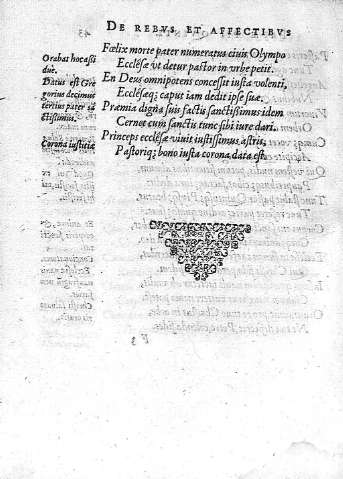 DE REBVS ET AFFECTIBVS
Fœlix morte pater numeratus ciuis Olympo
Ecclesæ vt detur pastor in vrbe petit.
En Deus omnipotens concessit iusta volenti,
Ecclesæq; caput iam dedit ipse suæ.
Præmia digna suis factis sanctissimus idem
Cernet cum sanctis tunc sibi iure dari.
Princeps ecclesæ viuit iustissimus astris,
Pastoriq; bono iusta corona data est.
Orabat hoc assi
due.
Datus est Gre
gorius decimus
tertius pater sā
ctissimus.
Corona iustitiæ